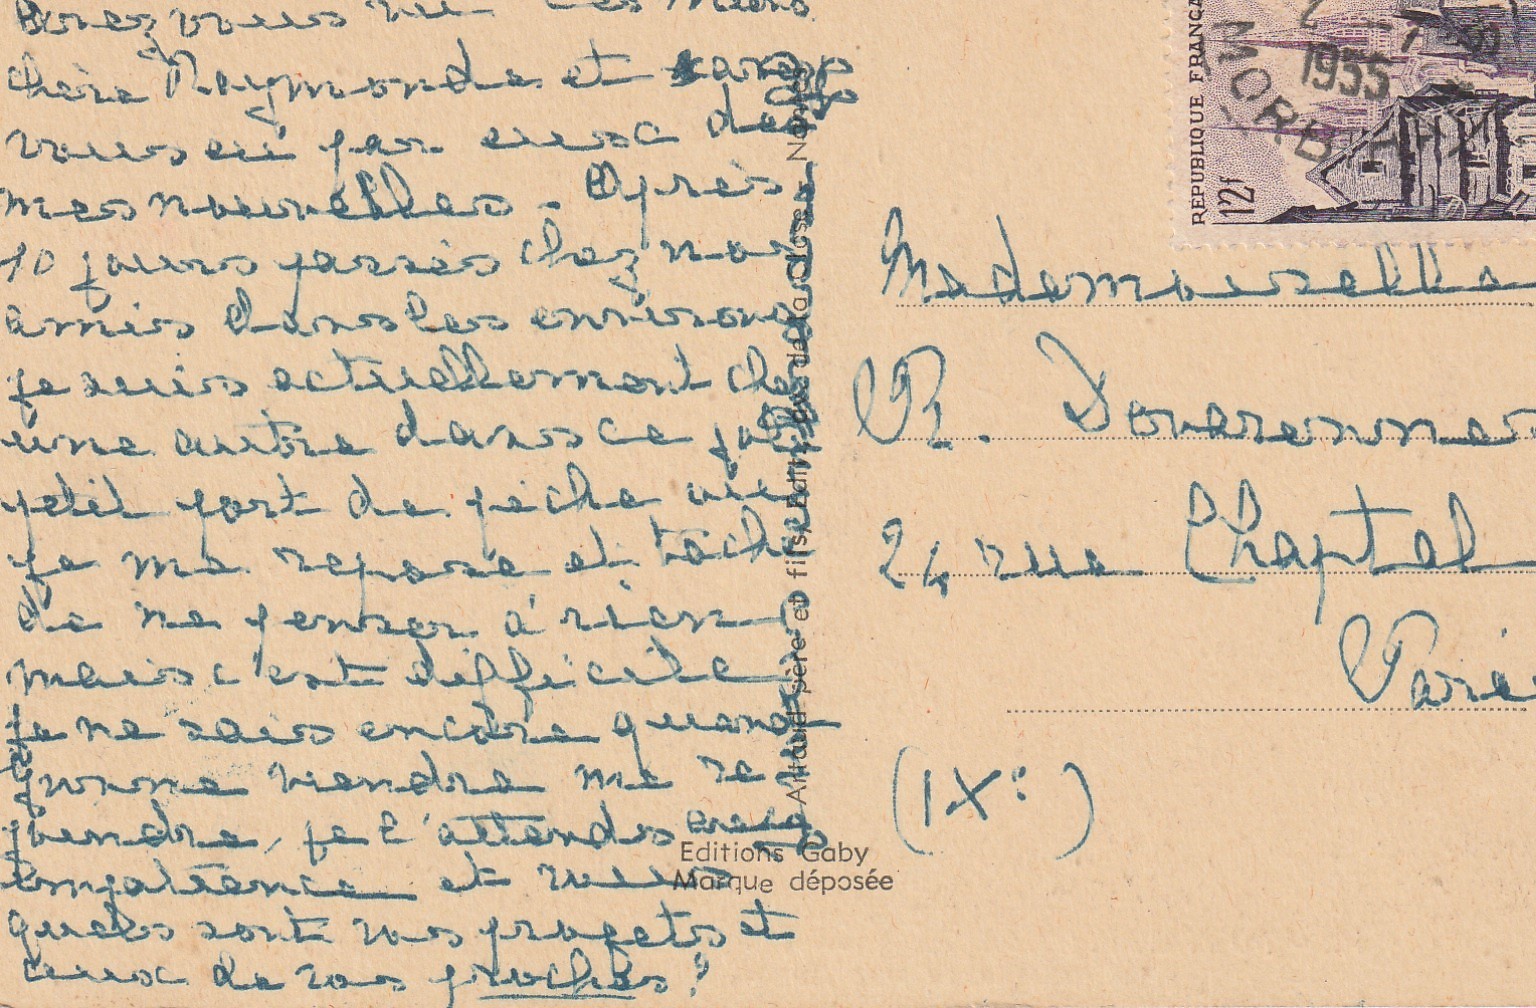 Avez vous vu les miens
chère Raymonde et avez
vous eu par eux de
mes nouvelles. Après
10 jours passés chez nos
amis dans les environs
je suis actuellement chez
une autre dans ce joli
petit port de pêche où
je me repose et tâche
de ne penser à rien
mais c'est difficile
je ne sais encore quand
Yvonne viendra me re
joindre, je l'attends avec
impatience et vous
quels sont vos projets et
ceux de vos proches?
Artaud père et fils, Edit. de la Close Nantes
Editions Gaby
Marque déposée
REPUBLIQUE FRANÇA
12f
1955
MORBIHAN
Mademoiselle
R. Douarennes
24 rue Chaptal
Paris
(IXe)